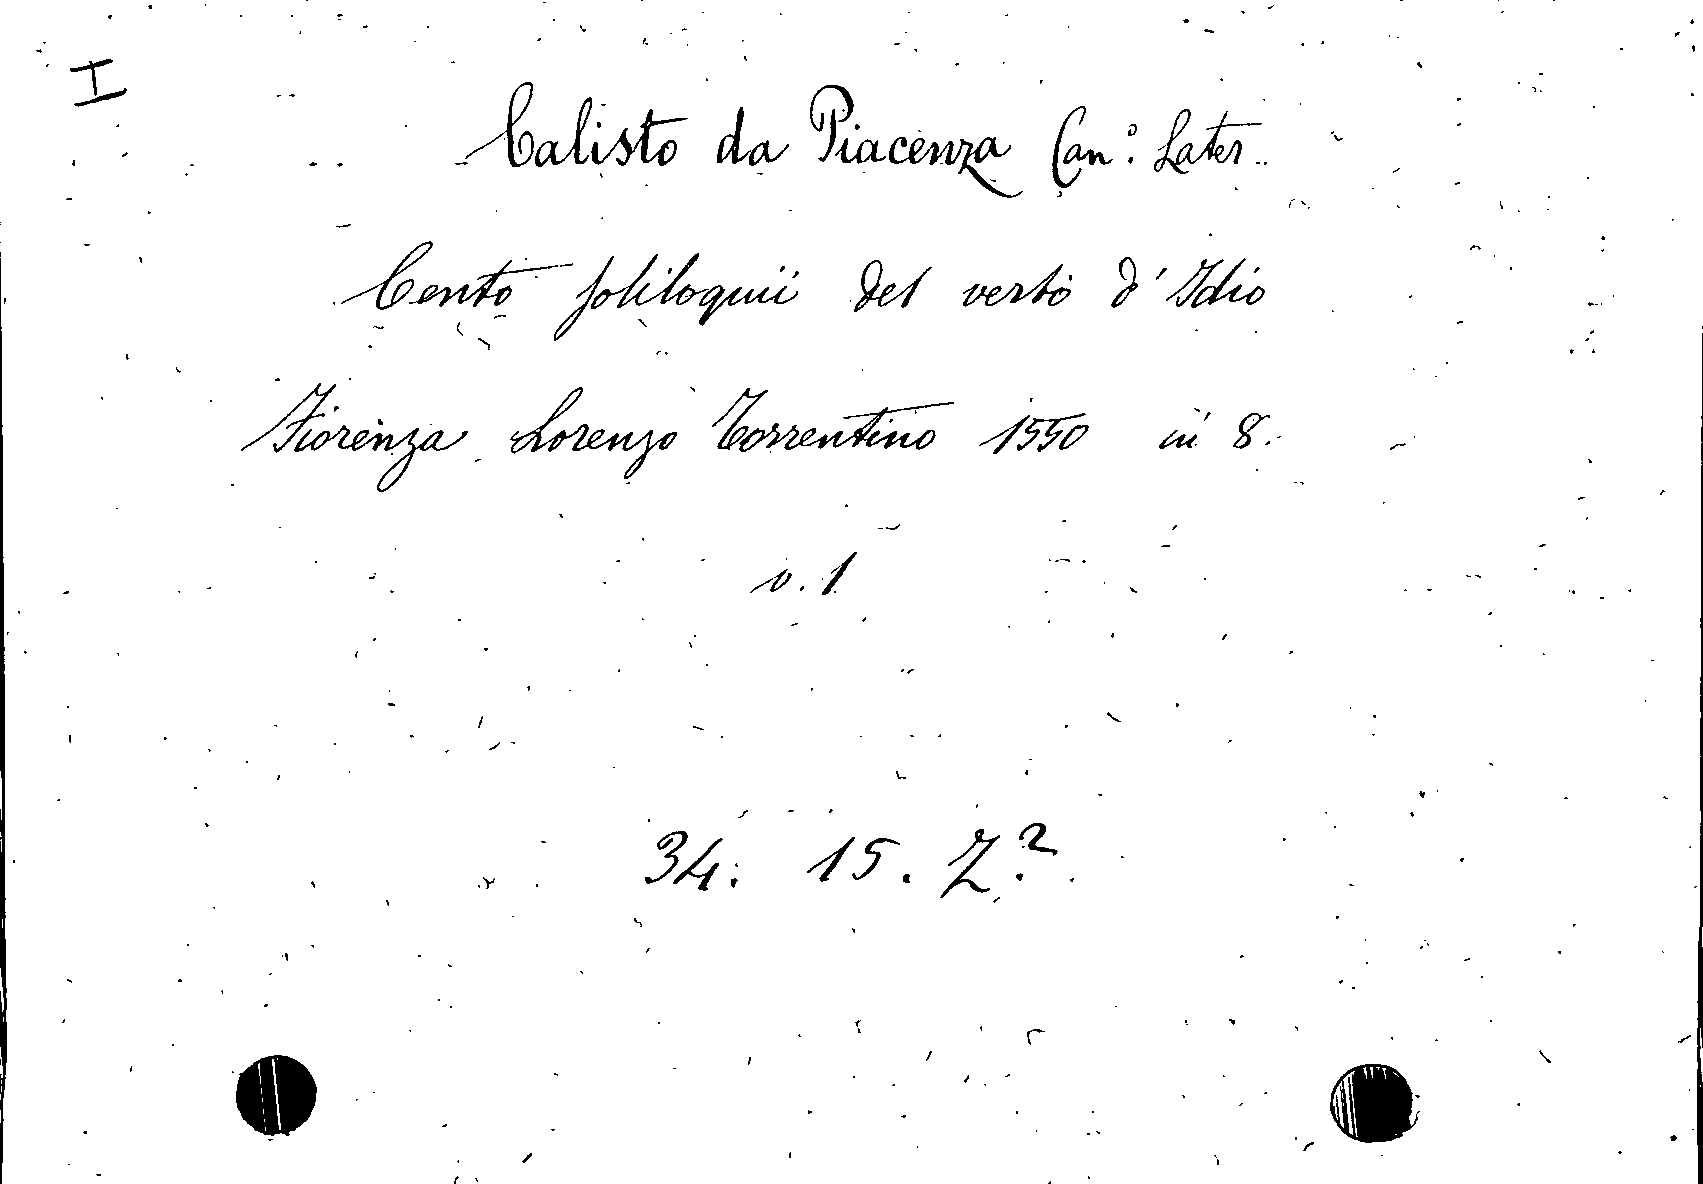 I
Calisto da Piacenza Can.º Later.
Cento soliloquii del verbo d'Idio
Fiorenza Lorenzo Torrentino 1550 in 8.
v. 1
34. 15. Z.2